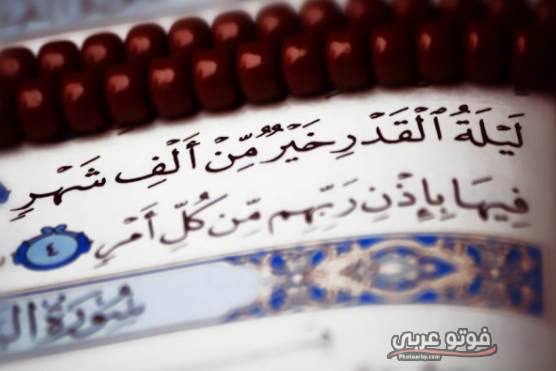 لَيْلَةُ ٱلْقَدْرِ خَيْرٌ مِّنْ أَلْفِ شَهْرٍ
فِيهَا بِإِذْنِ رَبِّهِم مِّن كُلِّ أَمْرٍ ٤
سُورَةُ
فوتو عربى
Photoarby.com